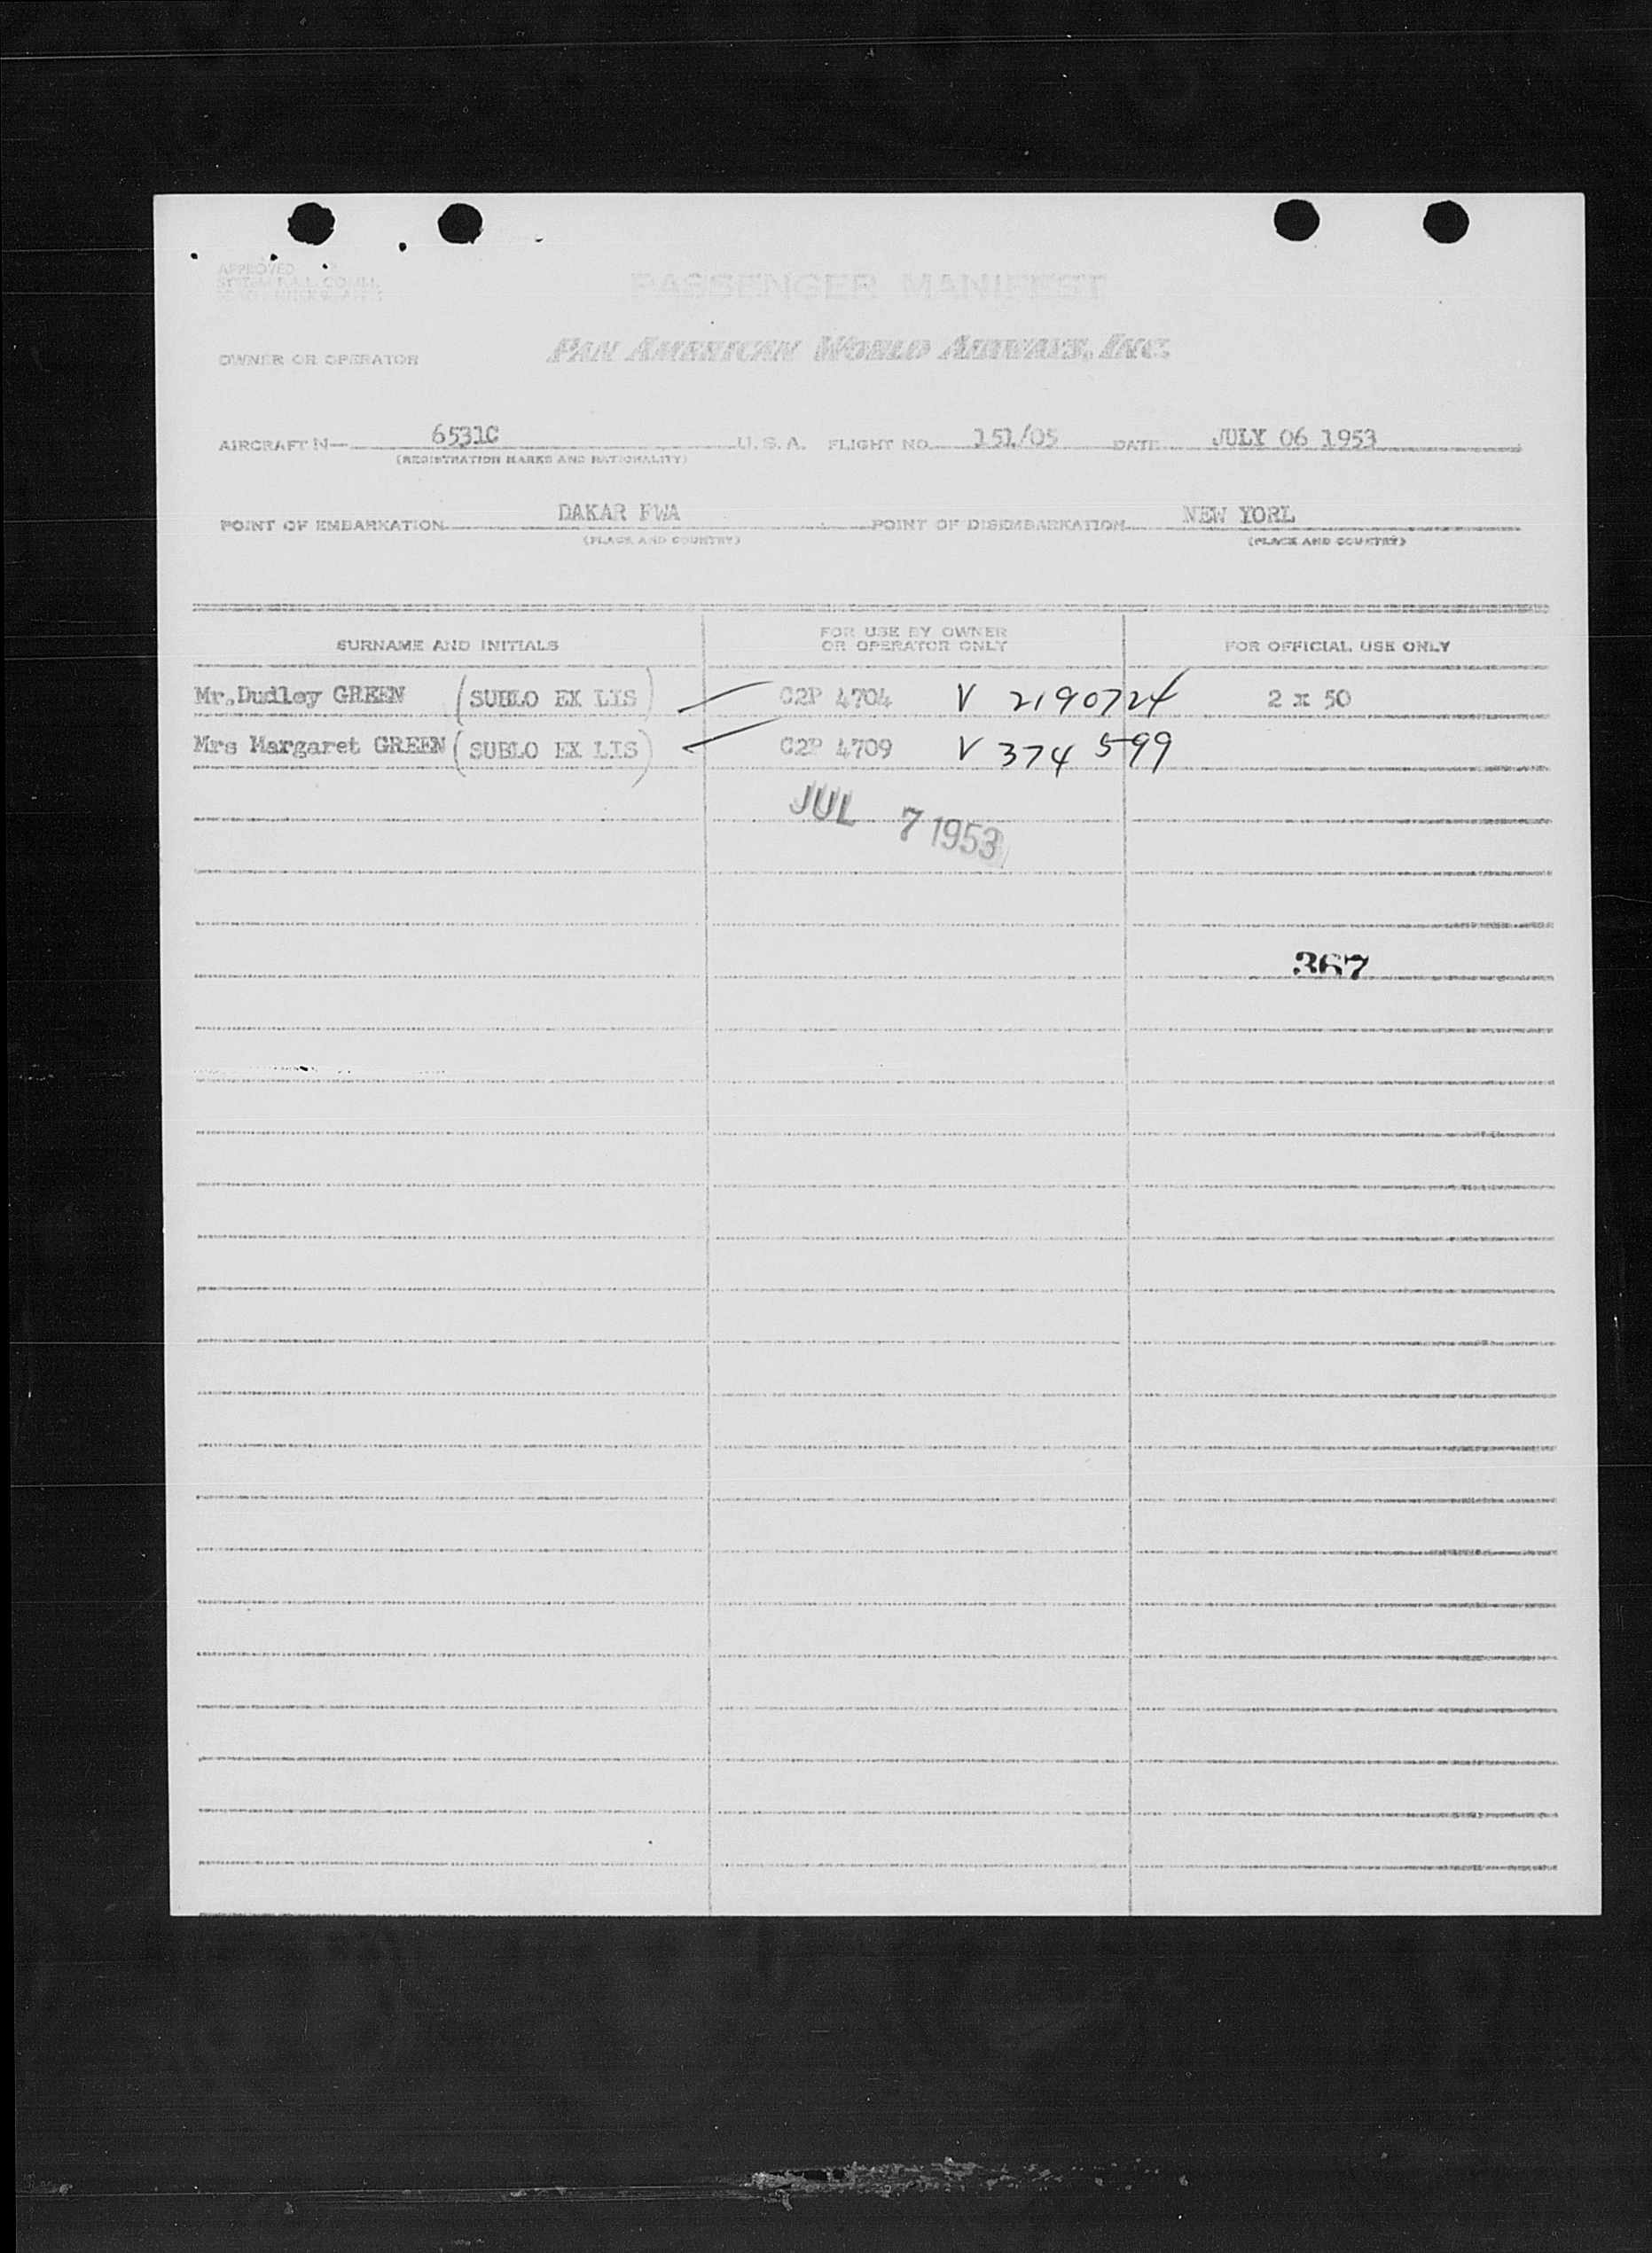 APPROVED
PASSENGER MANIFEST
OWNER OR OPERATOR PAN AMERICAN WORLD AIRWAYS, INC.
AIRCRAFT N— 6531C U. S. A. FLIGHT NO. 151/05 DATE JULY 06 1953
(REGISTRATION MARKS AND NATIONALITY)
POINT OF EMBARKATION DAKAR FWA POINT OF DISEMBARKATION NEW YORL
(PLACE AND COUNTRY) (PLACE AND COUNTRY)
SURNAME AND INITIALS FOR USE BY OWNER OR OPERATOR ONLY FOR OFFICIAL USE ONLY
Mr.Dudley GREEN (SUBLO EX LIS) C2P 4704 V 2190724 2 x 50
Mrs Margaret GREEN (SUBLO EX LIS) C2P 4709 V 374599
JUL 7 1953
367